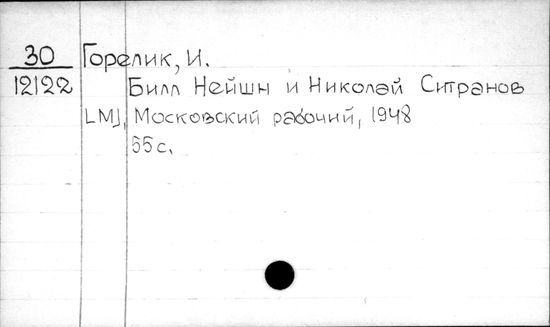 30 Горелик, И.
12122 Билл Нейшн и Николай Ситранов
[М], Московский рабочий, 1948
55 с.